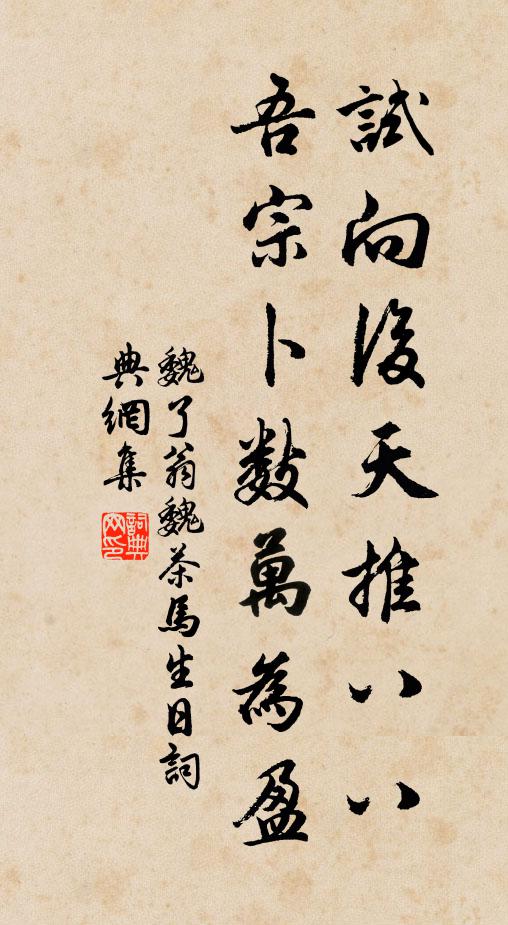 試向後天推八八
吾宗卜數萬為盈
魏了翁魏茶馬生日詞
典網集
詞典網印